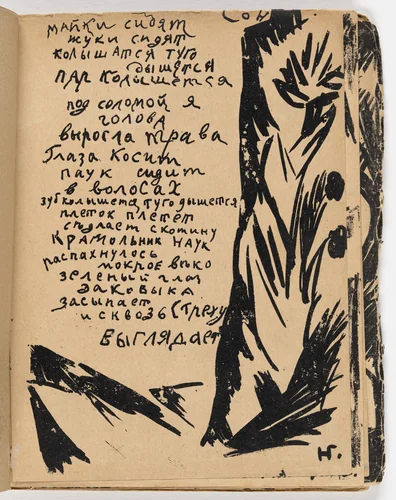 Сон
майки сидят
жуки сидят
колышатся туго
дышется
пар колышется
под соломой я
голова
выросла трава
Глаза косит
паук сидит
в волосах
зуб колышется туго дышется
плеток плетет
сделает скотину
крамольник наук
распахнулось
мокрое веко
зеленый глаз
заковыка
засыпает
и сквозь
выглядает
Н.